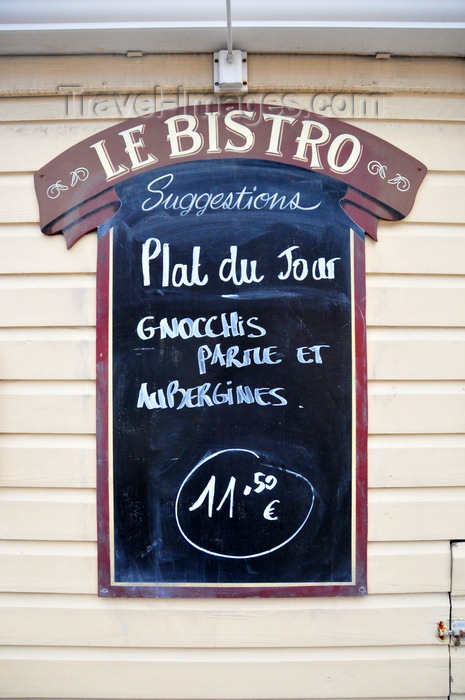 Travel-Images.com
LE BISTRO
Suggestions
Plat du Jour
GNOCCHiS
PARME ET
AUBERGINES.
11.50
€